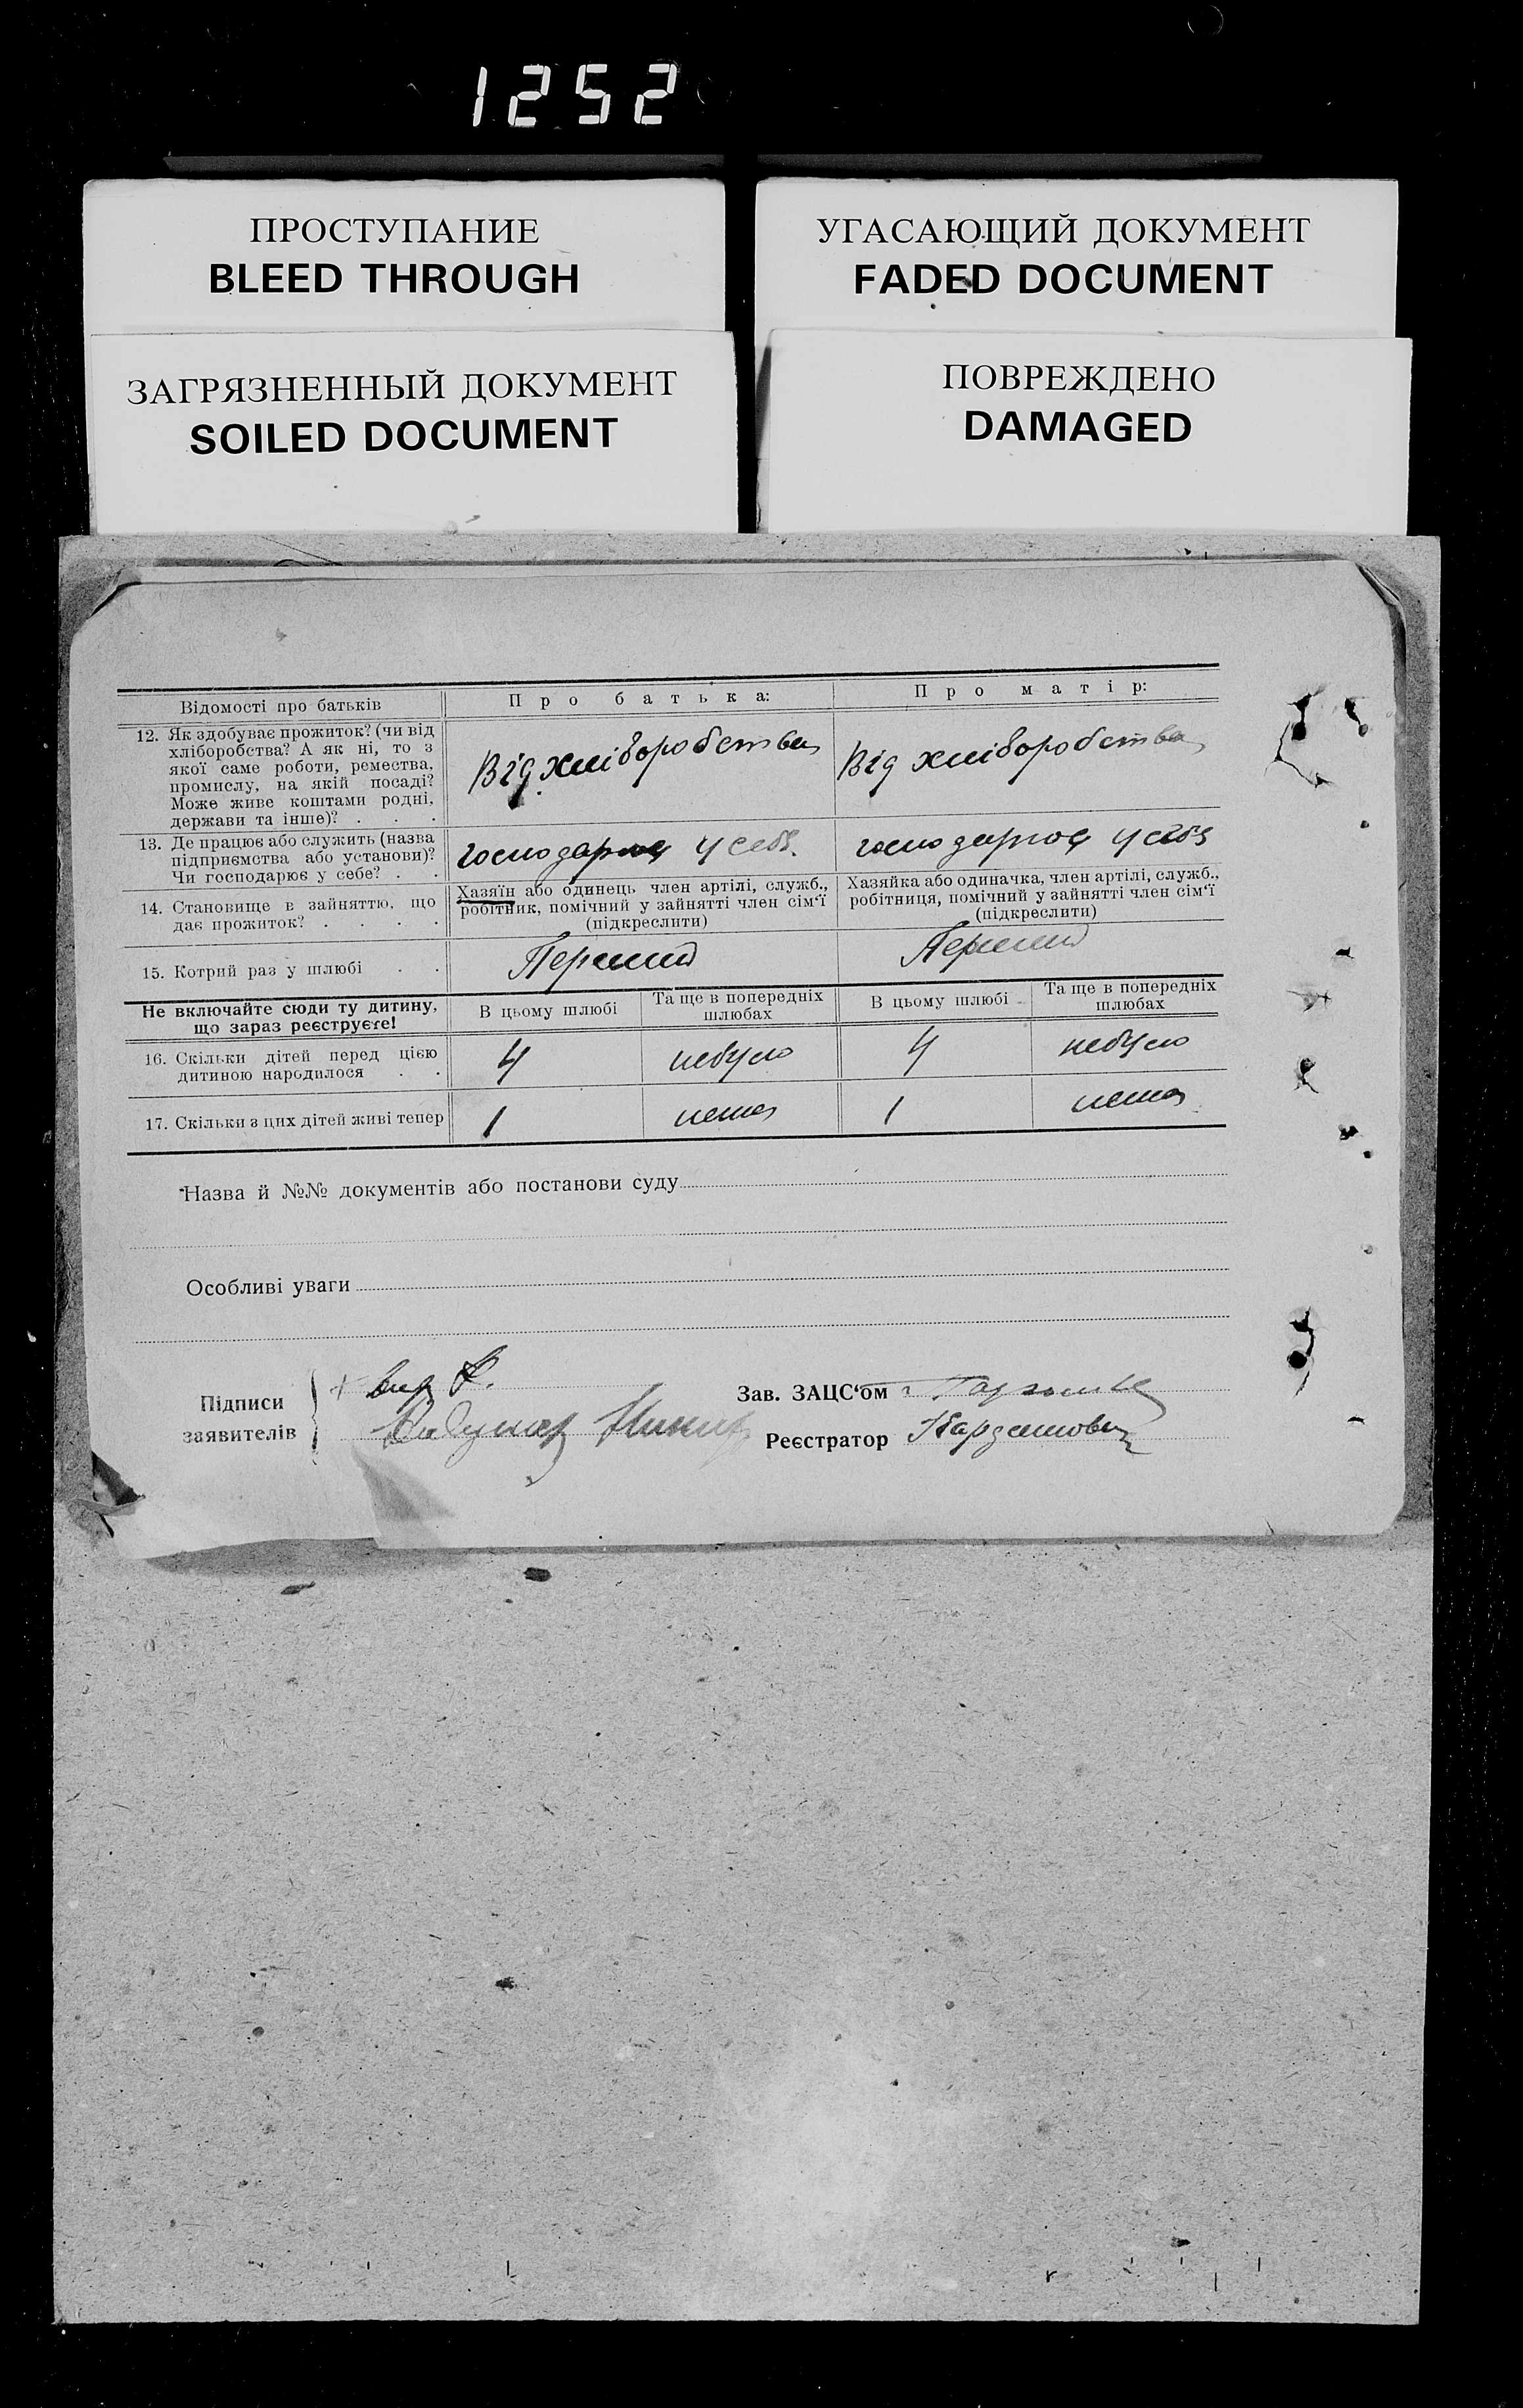 1252
ПРОСТУПАНИЕ
BLEED THROUGH
УГАСАЮЩИЙ ДОКУМЕНТ
FADED DOCUMENT
ЗАГРЯЗНЕННЫЙ ДОКУМЕНТ
SOILED DOCUMENT
ПОВРЕЖДЕНО
DAMAGED
Відомості про батьків
Про батька:
Про матір:
12. Як здобуває прожиток? (чи від
хліборобства? А як ні, то з
якої саме роботи, ремества,
промислу, на якій посаді?
Може живе коштами родні,
держави та інше)? . . .
Від хліборобства
Від хліборобства
13. Де працює або служить (назва
підприємства або установи)?
Чи господарює у себе? . .
господарює у себе.
господарює у себе
14. Становище в зайняттю, що
дає прожиток? . . . .
Хазяїн або одинець член артілі, служб.,
робітник, помічний у зайнятті член сім'ї
(підкреслити)
Хазяйка або одиначка, член артілі, служб.,
робітниця, помічний у зайнятті член сім'ї
(підкреслити)
15. Котрий раз у шлюбі . .
Перший
Перший
Не включайте сюди ту дитину,
що зараз реєструєте!
В цьому шлюбі
Та ще в попередніх
шлюбах
В цьому шлюбі
Та ще в попередніх
шлюбах
16. Скільки дітей перед цією
дитиною народилося . .
4
небуло
4
небуло
17. Скільки з цих дітей живі тепер
1
нема
1
нема
Назва й №№ документів або постанови суду
Особливі уваги
Підписи
заявителів
Зав. ЗАЦС'ом
Реєстратор